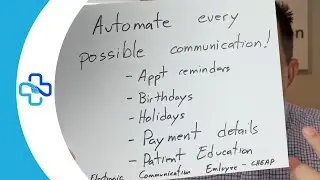 Automate every
possible communication!
- Appt reminders
- Birthdays
- Holidays
- Payment details
- Patient Education
Electronic Communication Employee - CHEAP